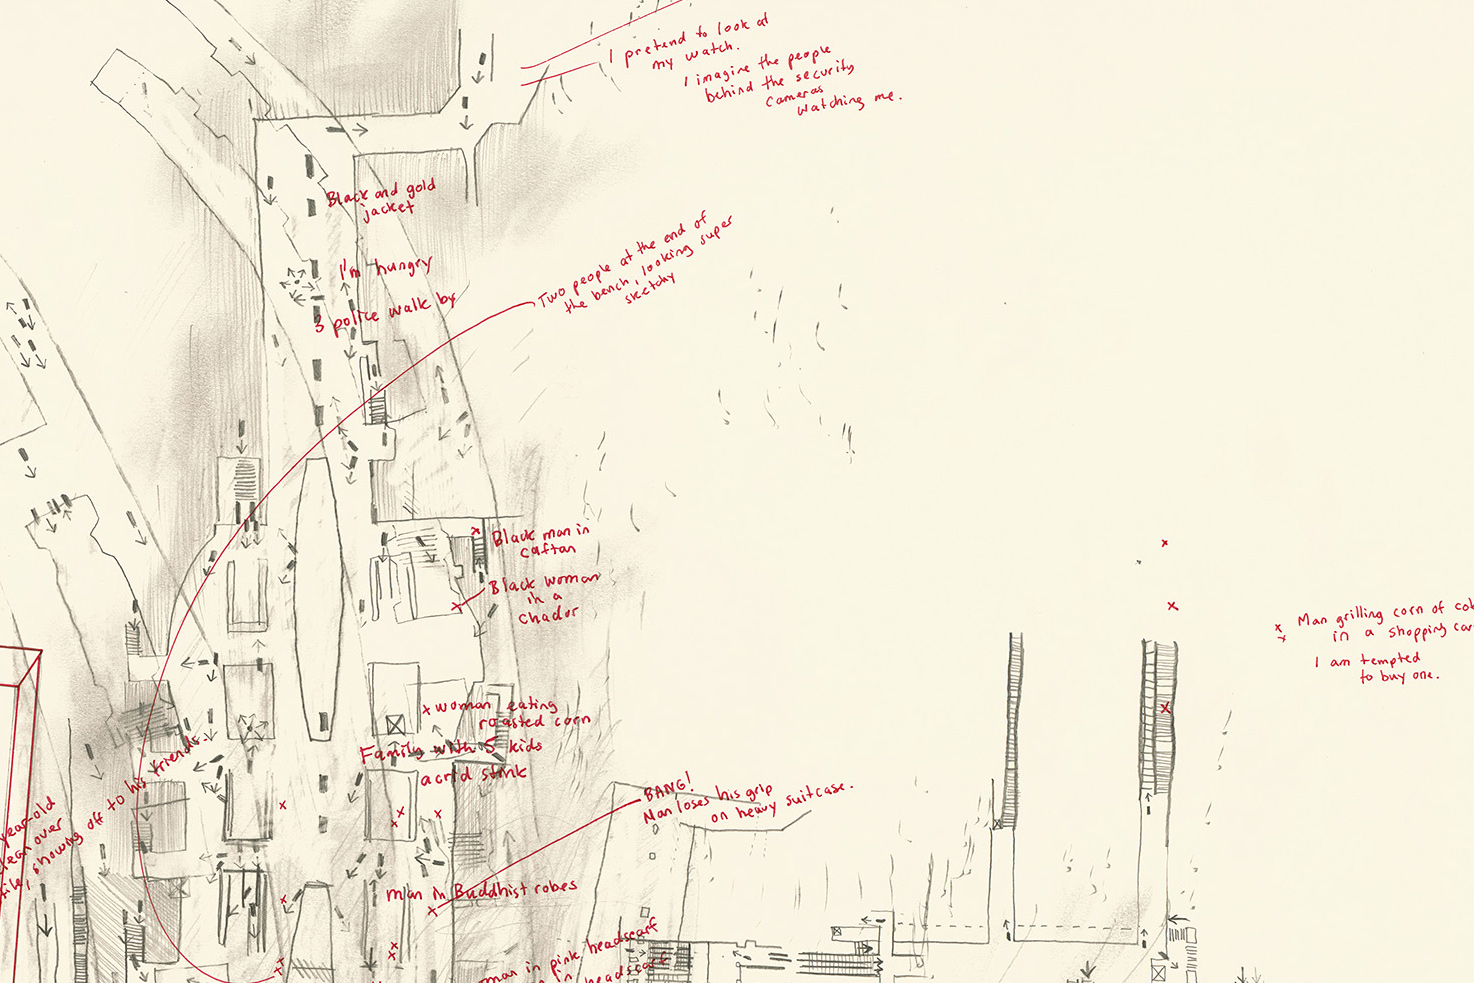 I pretend to look at
my watch.
I imagine the people
behind the security
cameras
watching me.
Black and gold
jacket
I'm hungry
3 police walk by
Two people at the end of
the bench, looking super
sketchy
Black man in
caftan
Black woman
in a
chador
Man grilling corn of
in a shopping
I am tempted
to buy one.
woman eating
roasted corn
Family with 5 kids
acrid stink
BANG!
Man loses his grip
on heavy suitcase.
year-old
clean over
showing off to his friends.
man in Buddhist robes
in pink headscarf
in headscarf